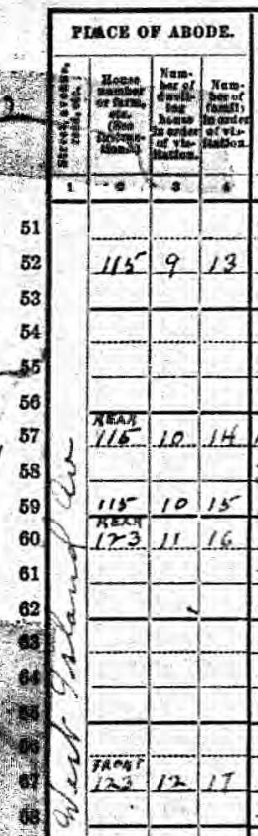 PLACE OF ABODE.
Street, avenue, road, etc.
House number or farm, etc. (See Instructions.)
Number of dwelling house in order of visitation.
Number of family in order of visitation.
1 2 3 4
51
52 115 9 13
53
54
55
56
57 REAR 115 10 14
58
59 115 10 15
60 REAR 123 11 16
61
62
63
64
65
66
67 FRONT 123 12 17
68
West Island Av